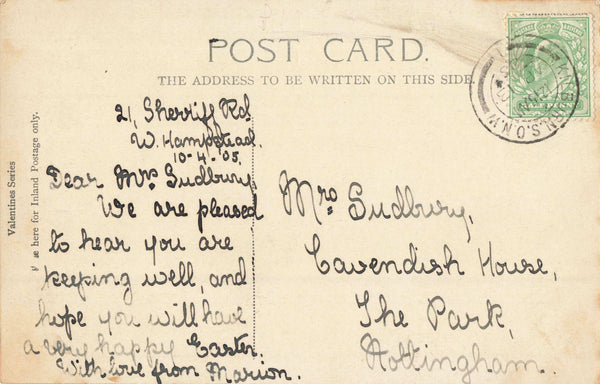 POST CARD.
THE ADDRESS TO BE WRITTEN ON THIS SIDE.
Valentines Series
here for Inland Postage only.
HALFPENNY
KILBURN S.O. N.W.
21, Sherriff Rd
W. Hampstead.
10-4-'05.
Dear Mrs Sudbury,
We are pleased
to hear you are
keeping well, and
hope you will have
a very happy Easter.
With love from Marion.
Mrs Sudbury,
Cavendish House,
The Park,
Nottingham.